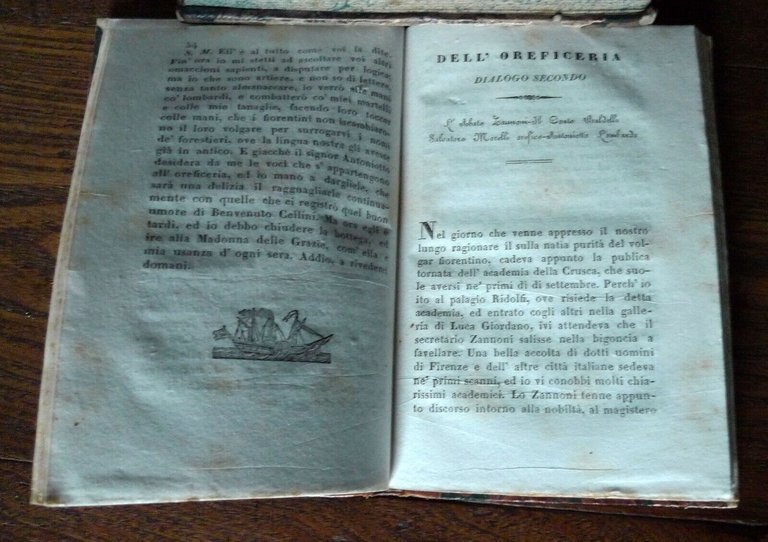 54
S. M. Ell' è al tutto come voi la dite.
Fin' ora io mi stetti ad ascoltare voi altri
omaccioni sapienti, a disputare per logica;
ma io che sono artiere, e non so di lettere,
senza tanto almanaccare, io verrò alle mani
co' lombardi, e combatterò co' miei martelli
e colle mie tanaglie, facendo loro toccar
colle mani, che i fiorentini non iscambiaro-
no il loro volgare per surrogarvi i nomi
de' forestieri, ove la lingua nostra gli avesse
già in antico. E giacchè il signor Antoniotto
desidera da me le voci che s' appartengono
all' oreficeria, ed io mano a dargliele, che
sarà una delizia il ragguagliarle continua-
mente con quelle che ci registrò quel buon
umore di Benvenuto Cellini. Ma ora egli è
tardi, ed io debbo chiudere la bottega, ed
ire alla Madonna delle Grazie, com' ella è
mia usanza d' ogni sera. Addio, a rivederci
domani.
DELL' OREFICERIA
DIALOGO SECONDO
L' Abate Zannoni-Il Conte
Salvatore Morello orefice-Antoniotto Lombardo
Nel giorno che venne appresso il nostro
lungo ragionare il sulla natia purità del vol-
gar fiorentino, cadeva appunto la publica
tornata dell' academia della Crusca, che suo-
le aversi ne' primi dì di settembre. Perch' io
ito al palagio Ridolfi, ove risiede la detta
academia, ed entrato cogli altri nella galle-
ria di Luca Giordano, ivi attendeva che il
secretario Zannoni salisse nella bigoncia a
favellare. Una bella accolta di dotti uomini
di Firenze e dell' altre città italiane sedeva
ne' primi scanni, ed io vi conobbi molti chia-
rissimi academici. Lo Zannoni tenne appun-
to discorso intorno alla nobiltà, al magistero